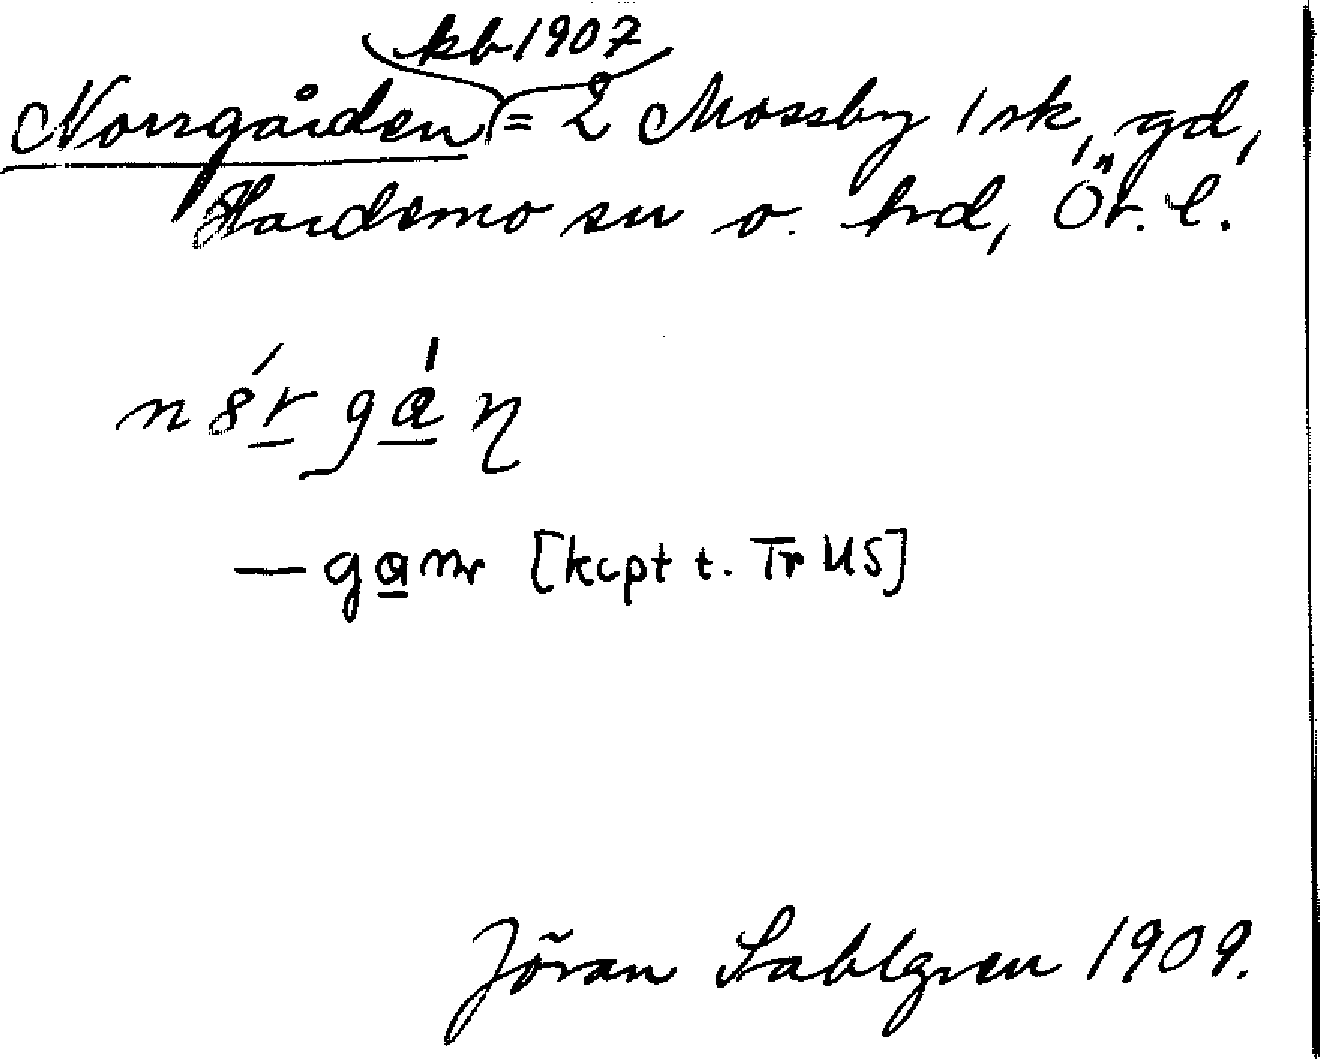 kb 1907
Norrgården = 2 Mossby 1 sk, gd,
Hardemo sn o. hrd, Ör. l.
[kcpt t. Tr US]
Jöran Sahlgren 1909.